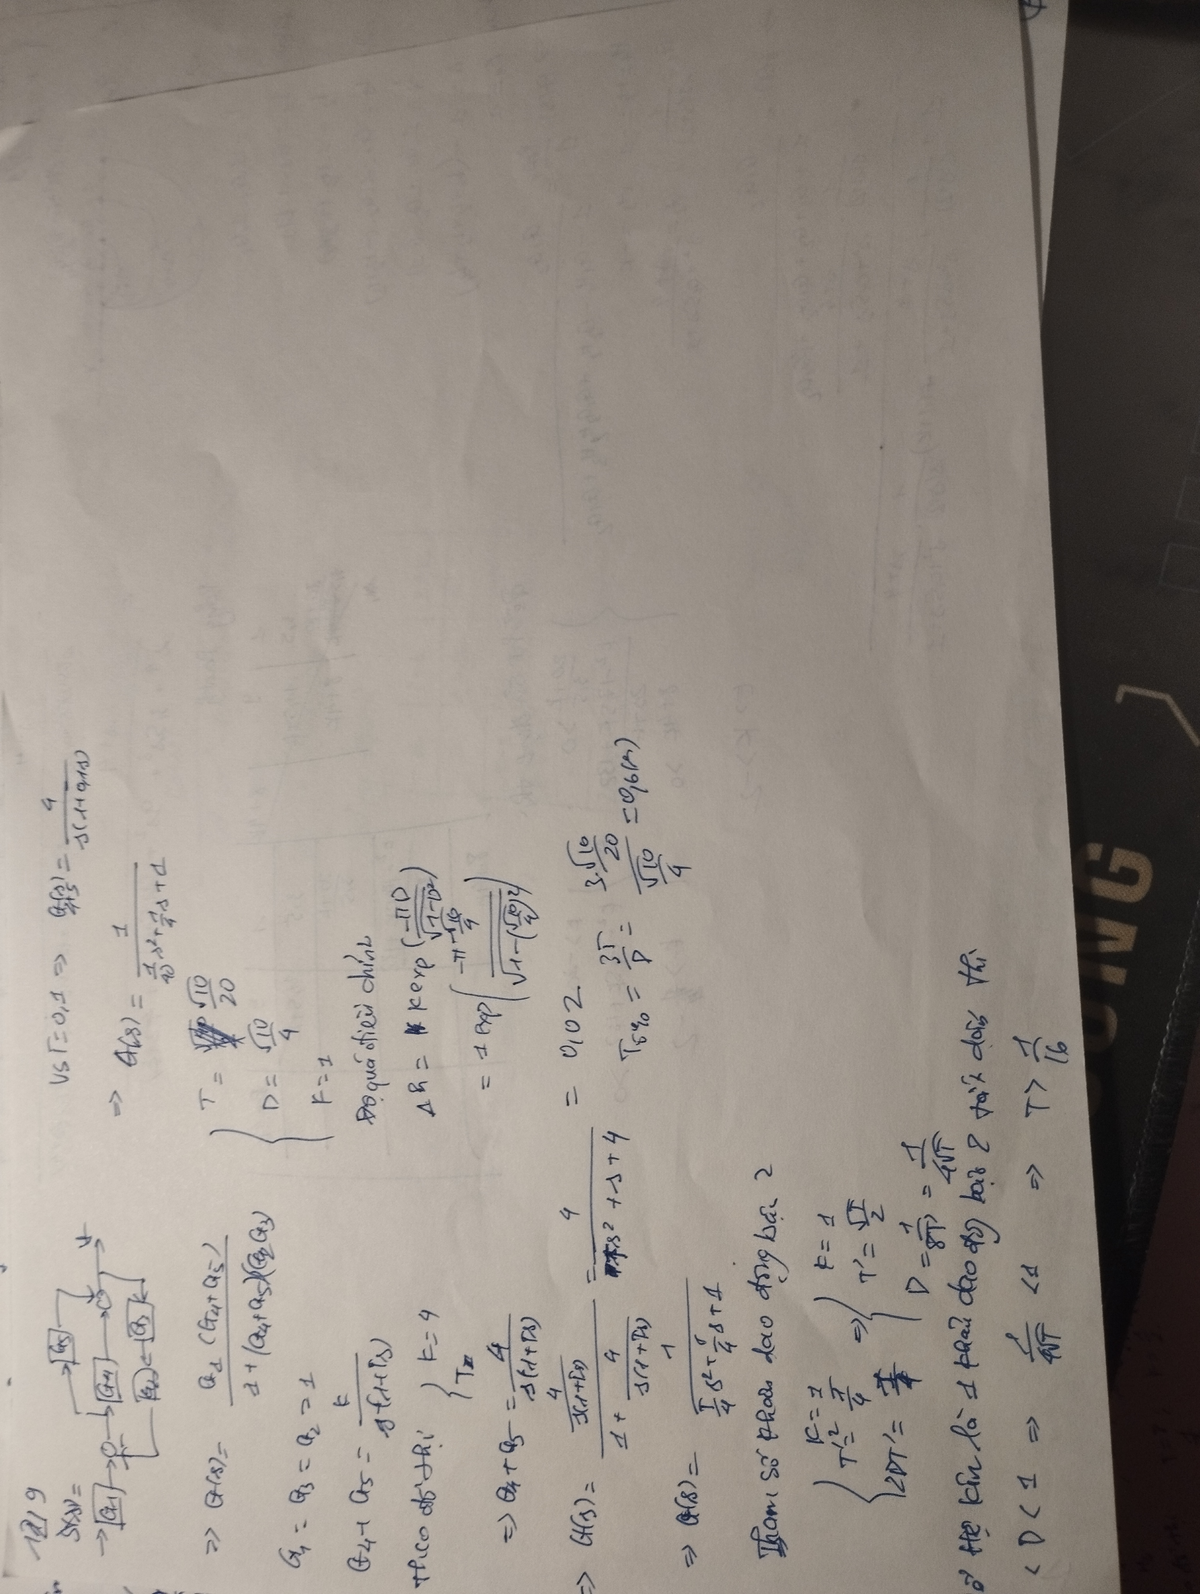 1219
S(s) =
G1
G4
G5
G2
G3
=> G(s) = G1 (G4+G5) / 1+(G4+G5)(G2G3)
G1 = G3 = G2 = 1
G4+G5 = k / s(1+Ts)
Theo đồ thị { k=4
=> G4+G5 = 4 / s(1+Ts)
=> G(s) = 4/s(1+Ts) / 1+ 4/s(1+Ts) = 4 / Ts²+s+4
=> G(s) = 1 / T/4 s²+ 1/4 s+1
Tham số khâu dao động bậc 2
{ K=1
T'² = T/4
2DT' = 1/4
=> { K=1
T' = √T/2
D = 1/8T' = 1/4√T
Hệ kín là 1 khâu dao động bậc 2 tắt dần thì
< D < 1 => 1/4√T < 1 => T > 1/16
Vs T=0,1 => G4+5(s) = 4 / s(1+0,1s)
=> G(s) = 1 / 1/40 s²+ 1/4 s+1
{ T = √10/20
D = √10/4
K=1
Độ quá điều chỉnh
Δh = K exp(-πD/√1-D²)
= 1 exp(-π·√10/4 / √1-(√10/4)²)
= 0,02
T5% = 3T/D = 3·√10/20 / √10/4 = 0,6(s)